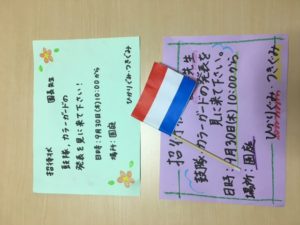 招待状
園長先生
鼓隊、カラーガードの
発表を見に来て下さい!
日時:9月30日(木)10:00から
場所:園庭
ひかりぐみ・つきぐみ
招待
先生
鼓隊、カラーガードの発表を
見に来て下さい。
日時:9月30日(木)10:00から
場所:園庭
ひかりぐみ・つきぐみ